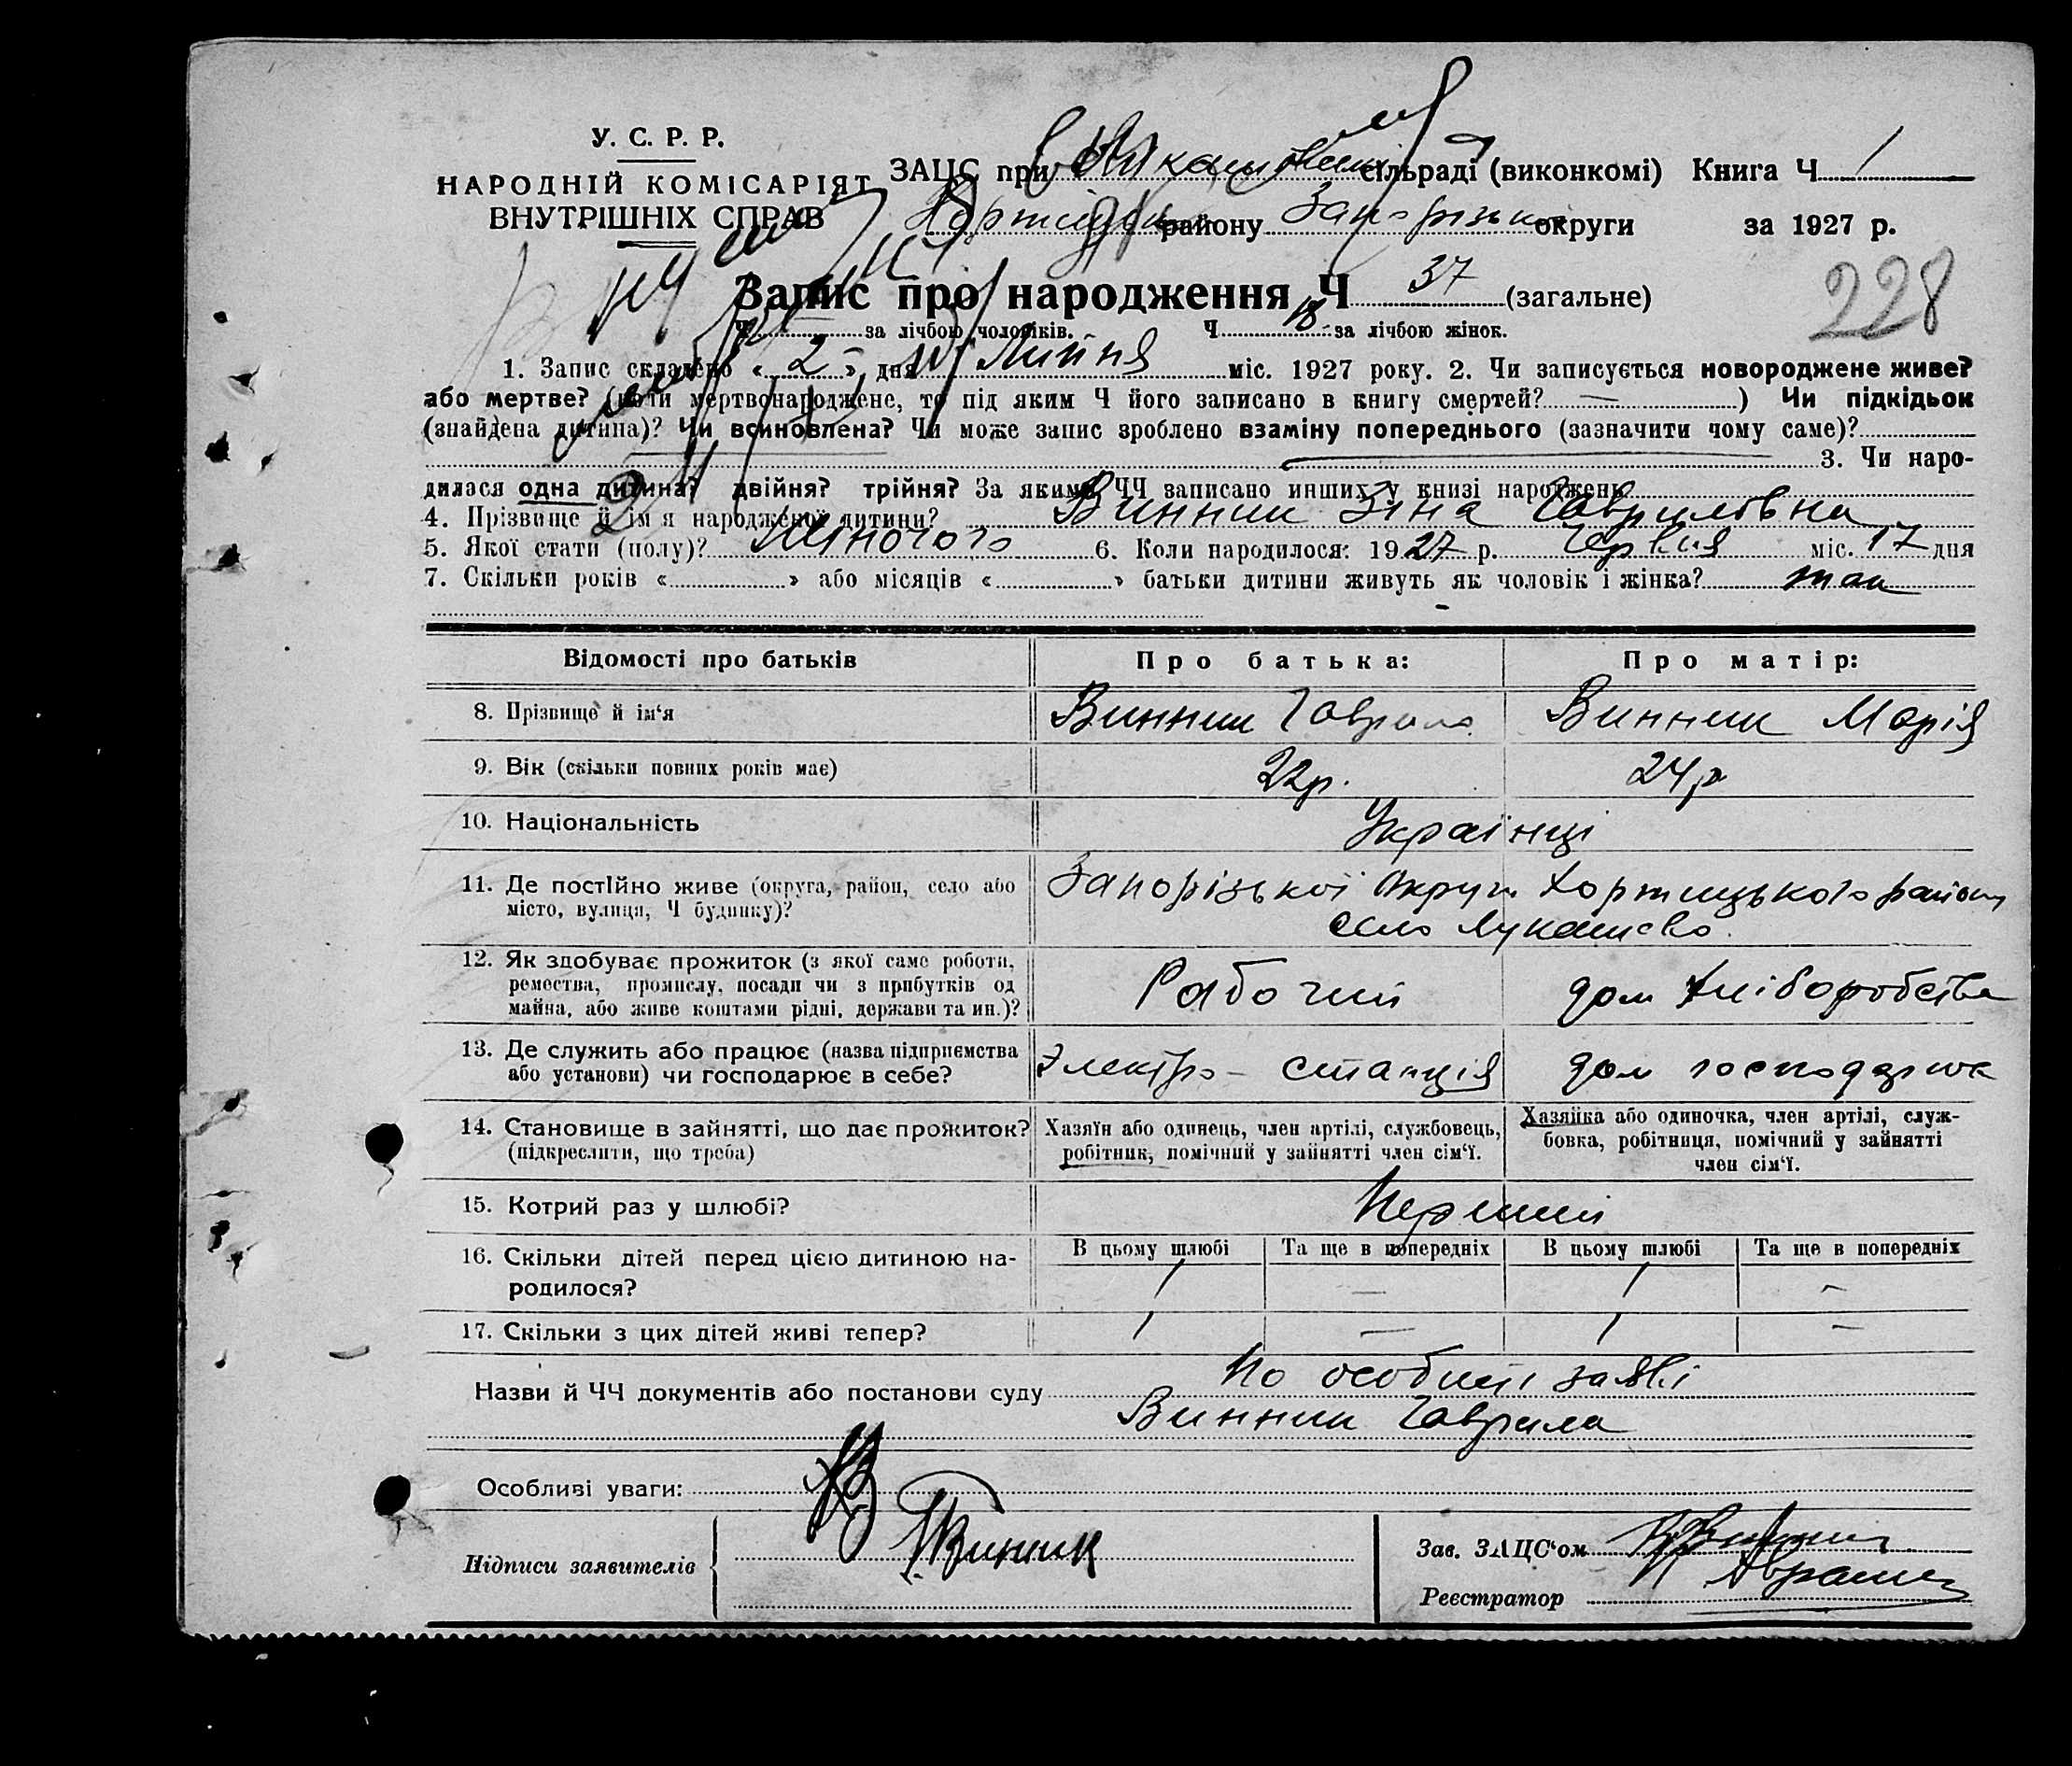 У. С. Р. Р.
НАРОДНІЙ КОМІСАРІЯТ
ВНУТРІШНІХ СПРАВ
ЗАЦС при сільраді (виконкомі) Книга Ч 1
району Запорізької округи за 1927 р.
228
Запис про народження Ч 37 (загальне)
Ч за лічбою чоловіків. Ч 18 за лічбою жінок.
1. Запис складено « 2 » дня Липня міс. 1927 року. 2. Чи записується новороджене живе?
або мертве? (коли мертвонароджене, то під яким Ч його записано в книгу смертей? — ) Чи підкідьок
(знайдена дитина)? Чи всиновлена? Чи може запис зроблено взаміну попереднього (зазначити чому саме)?
3. Чи наро-
дилася одна дитина? двійня? трійня? За якими ЧЧ записано инших у книзі народжень
4. Прізвище й ім'я народженої дитини? Винник Зіна Гаврилівна
5. Якої стати (полу)? Жіночого 6. Коли народилося: 1927 р. Червня міс. 17 дня
7. Скільки років « » або місяців « » батьки дитини живуть як чоловік і жінка? так
Відомості про батьків Про батька: Про матір:
8. Прізвище й ім'я Винник Гаврило Винник Марія
9. Вік (скільки повних років має) 22р. 24р
10. Національність Українці
11. Де постійно живе (округа, район, село або Запорізької округи Хортицького району
місто, вулиця, Ч будинку)? село Лукашево.
12. Як здобуває прожиток (з якої саме роботи,
ремества, промислу, посади чи з прибутків од Рабочий дом хліборобства
майна, або живе коштами рідні, держави та ин.)?
13. Де служить або працює (назва підприємства
або установи) чи господарює в себе? Электро-станція дом господарка
14. Становище в зайнятті, що дає прожиток? Хазяїн або одинець, член артілі, службовець, Хазяйка або одиночка, член артілі, служ-
(підкреслити, що треба) робітник, помічний у зайнятті член сім'ї. бовка, робітниця, помічний у зайнятті
член сім'ї.
15. Котрий раз у шлюбі? Перший
16. Скільки дітей перед цією дитиною на- В цьому шлюбі Та ще в попередніх В цьому шлюбі Та ще в попередніх
родилося? 1 — 1 —
17. Скільки з цих дітей живі тепер? 1 — 1 —
Назви й ЧЧ документів або постанови суду По особистій заяві
Винник Гаврила
Особливі уваги:
Підписи заявителів Г. Винник
Зав. ЗАЦС'ом
Реєстратор